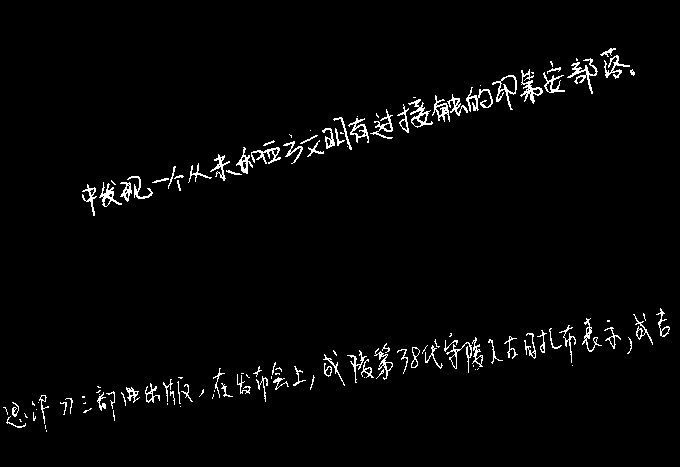 中发现一个从未和西方文明有过接触的印第安部落。
三部曲出版，在发布会上，成陵第38代守陵人古日扎布表示，成吉